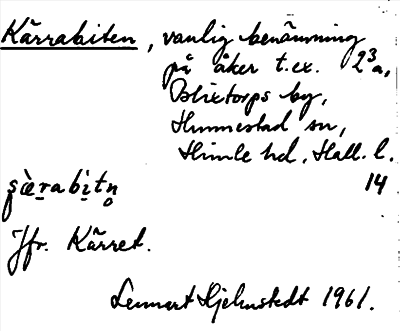 Kärrabiten, vanlig benämning
på åker t.ex. 2³a,
Blixtorps by,
Hunnestad sn,
Himle hd, Hall. l.
14
Jfr. Kärret.
Lennart Hjelmstedt 1961.